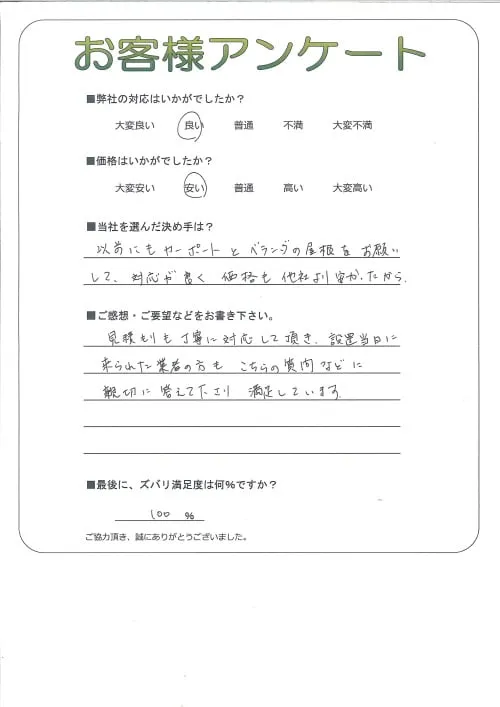 お客様アンケート
■弊社の対応はいかがでしたか？
大変良い 良い 普通 不満 大変不満
■価格はいかがでしたか？
大変安い 安い 普通 高い 大変高い
■当社を選んだ決め手は？
以前にもカーポートとベランダの屋根をお願い
して、対応が良く 価格も他社より安かったから
■ご感想・ご要望などをお書き下さい。
見積もりも丁寧に対応して頂き、設置当日に
来られた業者の方も こちらの質問などに
親切に答えて下さり 満足しています。
■最後に、ズバリ満足度は何%ですか？
100 %
ご協力頂き、誠にありがとうございました。